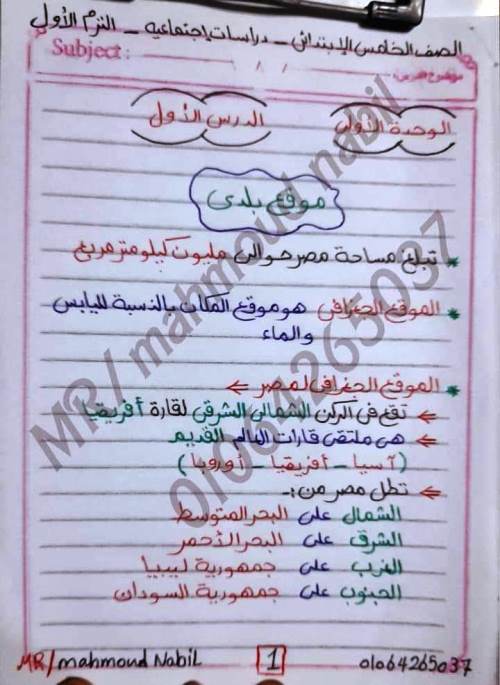 الصف الخامس الإبتدائى - دراسات إجتماعية - الترم الأول
Subject :
الوحدة الأولى
الدرس الأول
موقع بلدى
* تبلغ مساحة مصر حوالى مليون كيلو متر مربع
* الموقع الجغرافى هو موقع المكان بالنسبة لليابس
والماء
* الموقع الجغرافى لمصر ⇐
⇐ تقع فى الركن الشمالى الشرقى لقارة أفريقيا
⇐ هى ملتقى قارات العالم القديم
(آسيا - أفريقيا - أوروبا)
⇐ تطل مصر من :-
الشمال على البحر المتوسط
الشرق على البحر الأحمر
الغرب على جمهورية ليبيا
الجنوب على جمهورية السودان
MR/ mahmoud nabil
01064265037
MR/mahmoud Nabil
1
01064265037